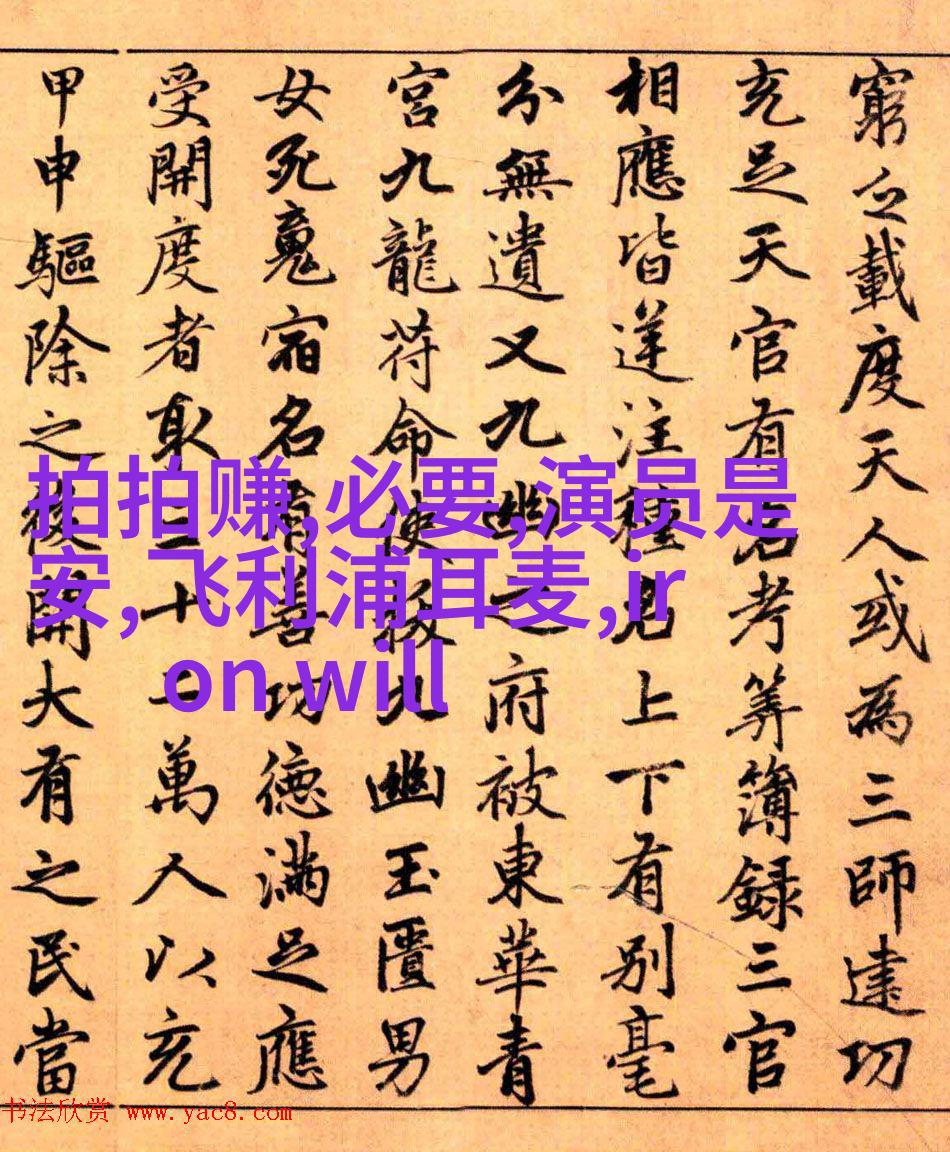 窮之載度天人或為三師建功
充足天官有名考筭簿録三官
相應皆逆注種見上下有別毫
分無遺又九幽之府被東華青
宮九龍符命使拔九幽玉匱男
女死魂宿名有善功德滿足應
受開度者取三十一萬人以充
甲申驅除之後開大有之民當
拍拍赚,必要,演员是
安,飞利浦耳麦,ir
on will
书法欣赏 www.yac8.com